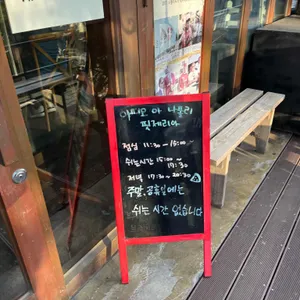 피제리아
점심 11:30 ~ 15:00
쉬는시간 15:00
~ 17:30
저녁 17:30 ~ 20:30
주말, 공휴일에는
쉬는 시간 없습니다